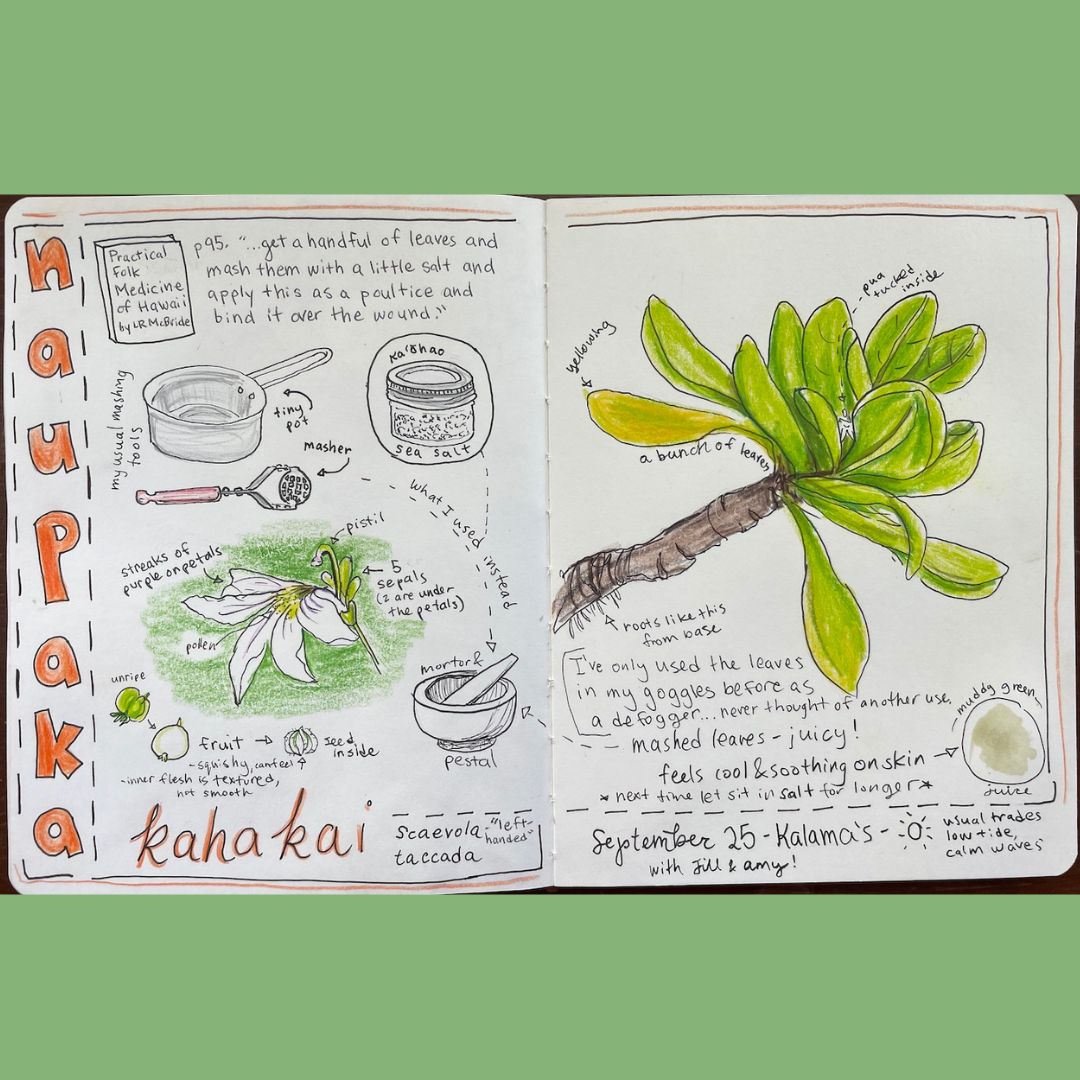 naupaka
Practical
Folk
Medicine
of Hawaii
by LR McBride
p95. "...get a handful of leaves and
mash them with a little salt and
apply this as a poultice and
bind it over the wound."
my usual mashing
tools
tiny
pot
masher
sea salt
what I used instead
streaks of
purple on petals
pistil
5
sepals
(2 are under
the petals)
pollen
unripe
fruit → seed
inside
- squishy, can feel
- inner flesh is textured,
not smooth
mortor &
pestal
kahakai
scaevola "left-
handed"
taccada
pua
tucked
inside
yellowing
a bunch of leaves
roots like this
from base
I've only used the leaves
in my goggles before as
a defogger... never thought of another use.
mashed leaves - juicy!
feels cool & soothing on skin
*next time let sit in salt for longer*
muddy green
juice
September 25 - Kalama's -
with Jill & Amy!
usual trades
low tide,
calm waves